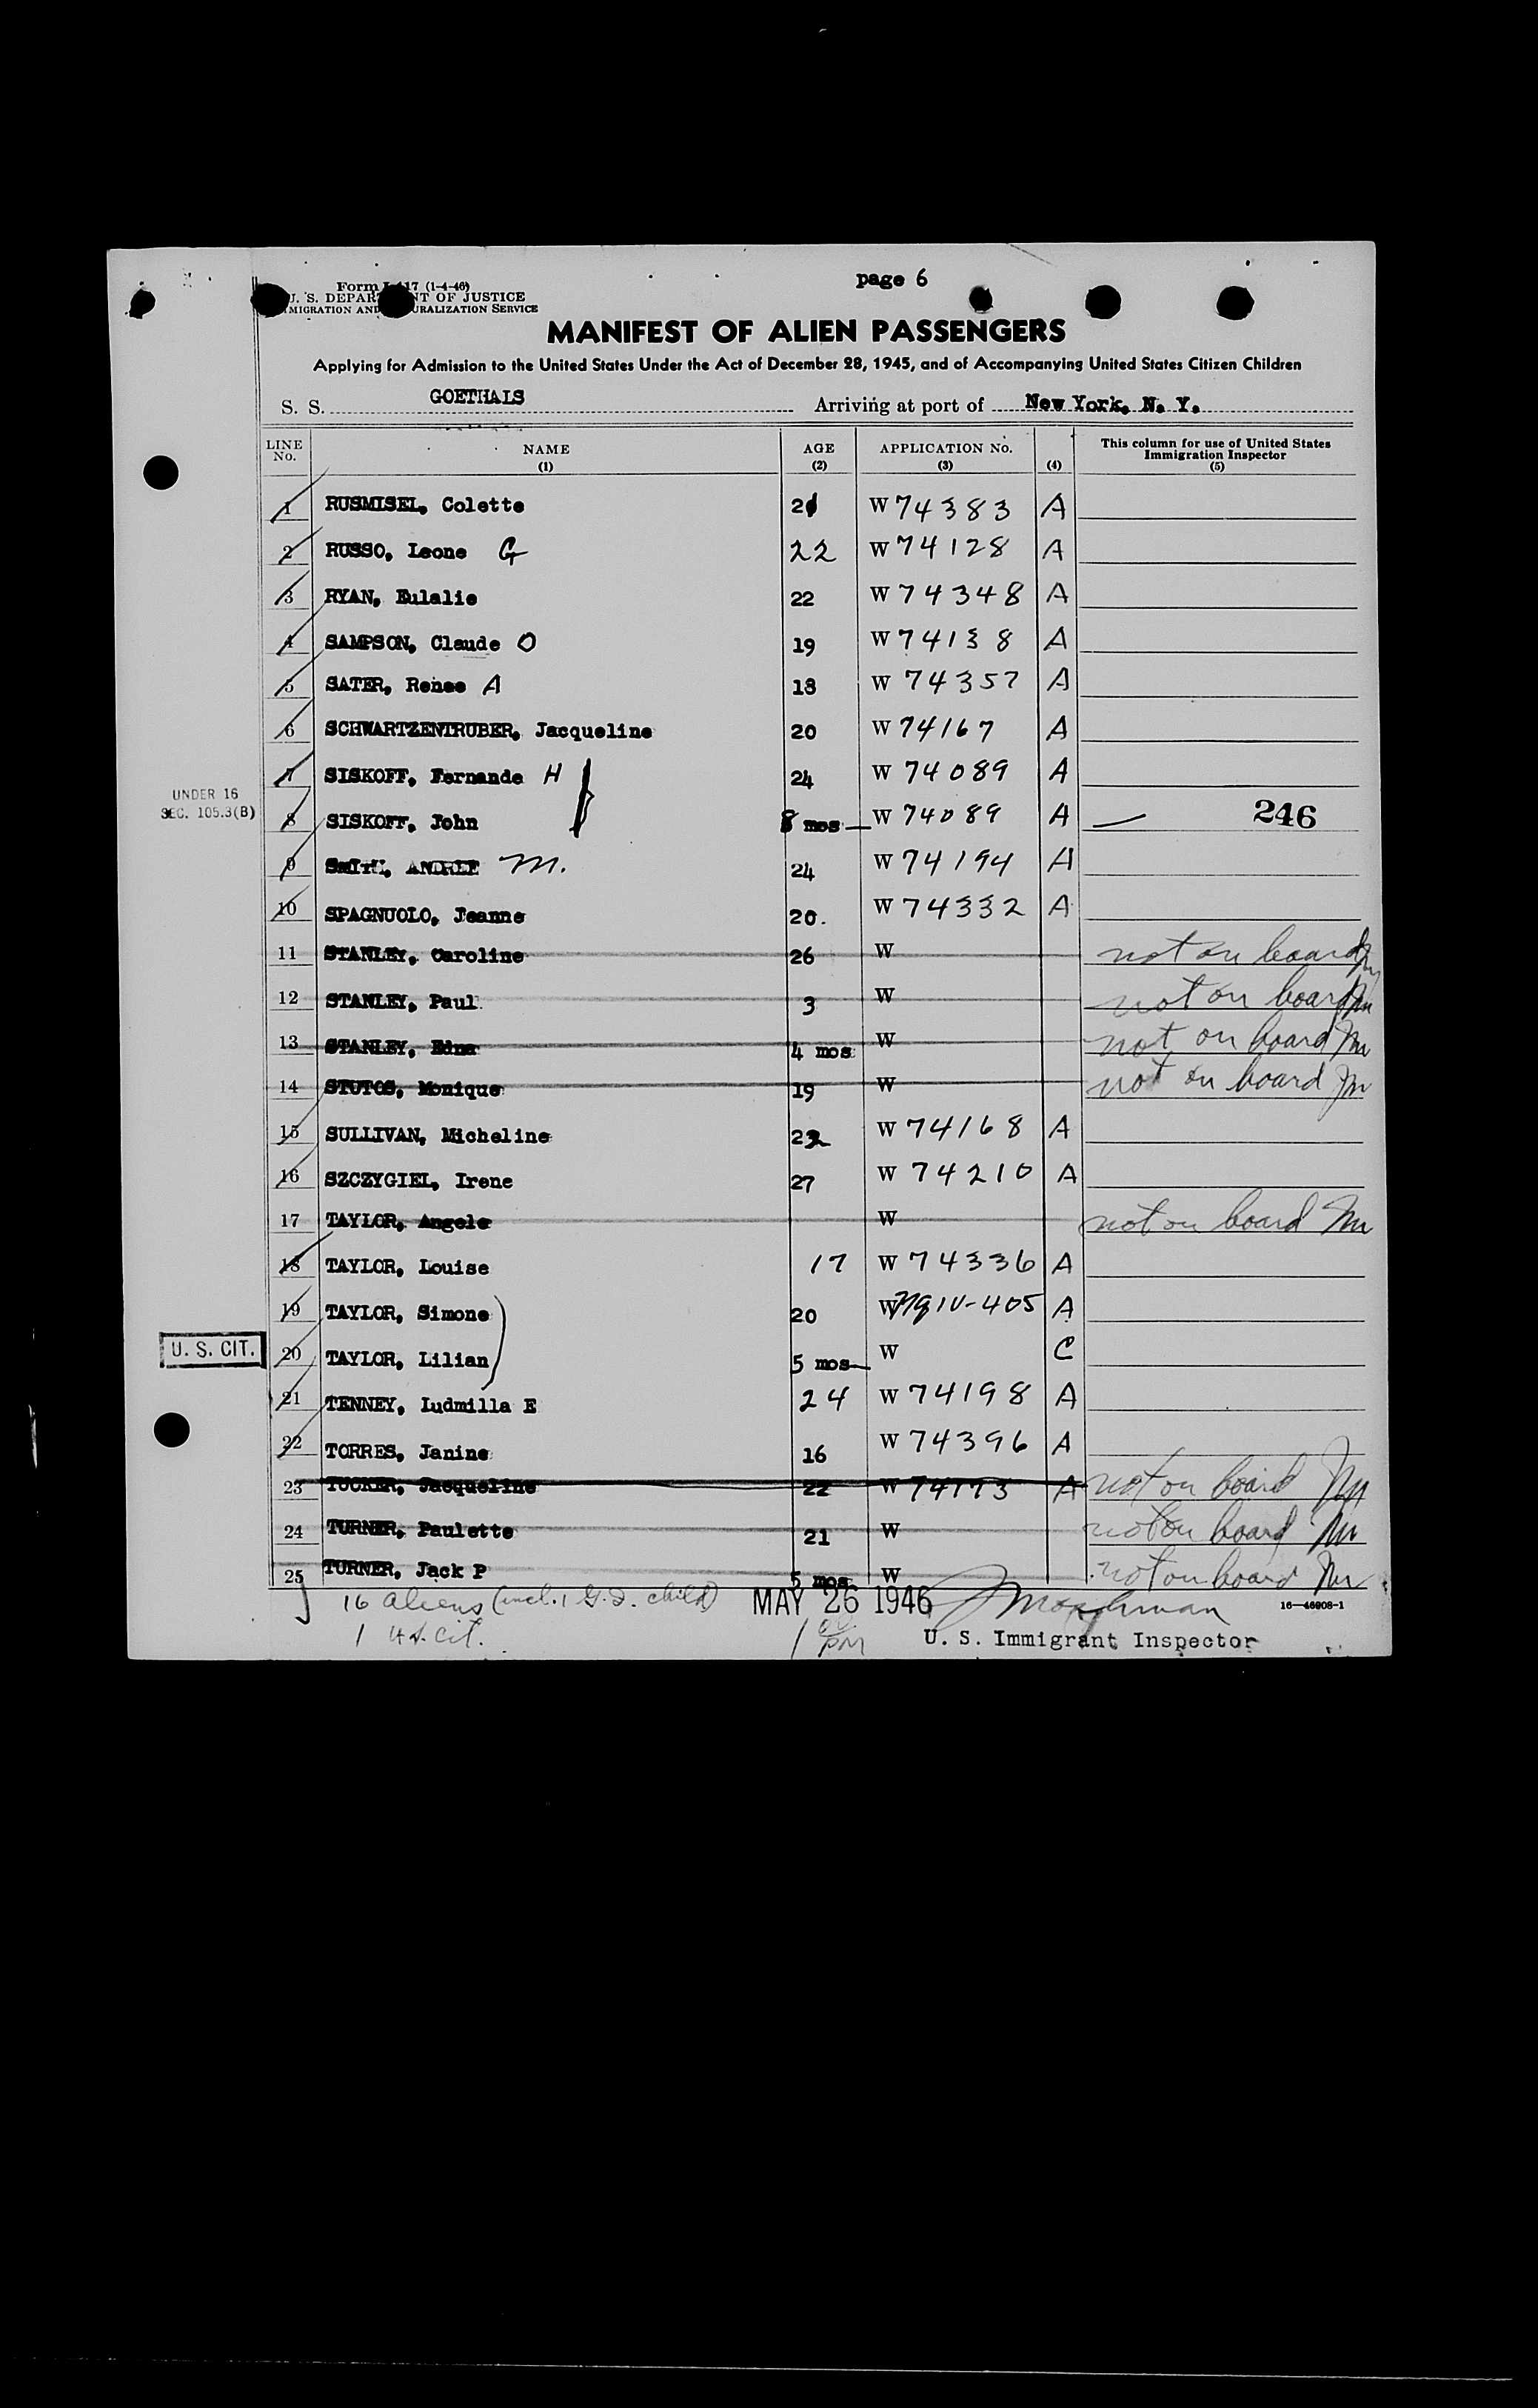 page 6
Form I-417 (1-4-46)
U. S. DEPARTMENT OF JUSTICE
IMMIGRATION AND NATURALIZATION SERVICE
MANIFEST OF ALIEN PASSENGERS
Applying for Admission to the United States Under the Act of December 28, 1945, and of Accompanying United States Citizen Children
S. S. GOETHALS Arriving at port of New York, N. Y.
LINE No. NAME (1) AGE (2) APPLICATION No. (3) (4) This column for use of United States Immigration Inspector (5)
1 RUSMISEL, Colette 21 W 74383 A
2 RUSSO, Leone G 22 W 74128 A
3 RYAN, Eulalie 22 W 74348 A
4 SAMPSON, Claude O 19 W 74138 A
5 SATER, Renee A 18 W 74357 A
6 SCHWARTZENTRUBER, Jacqueline 20 W 74167 A
7 SISKOFF, Fernande H 24 W 74089 A
UNDER 16 SEC. 105.3(B) 8 SISKOFF, John 8 mos W 74089 A — 246
9 SMITH, ANDREE M. 24 W 74194 A
10 SPAGNUOLO, Jeanne 20. W 74332 A
11 STANLEY, Caroline 26 W not on board
12 STANLEY, Paul 3 W not on board
13 STANLEY, Edna 4 mos W not on board
14 STUTOS, Monique 19 W not on board
15 SULLIVAN, Micheline 22 W 74168 A
16 SZCZYGIEL, Irene 27 W 74210 A
17 TAYLOR, Angele W not on board
18 TAYLOR, Louise 17 W 74336 A
19 TAYLOR, Simone 20 W NQIV-405 A
U. S. CIT. 20 TAYLOR, Lilian 5 mos W C
21 TENNEY, Ludmilla E 24 W 74198 A
22 TORRES, Janine 16 W 74396 A
23 TUCKER, Jacqueline 22 W 74173 A not on board
24 TURNER, Paulette 21 W not on board
25 TURNER, Jack P 5 mos W not on board
16 aliens (incl. 1 G.I. child) MAY 26 1946
16—46908-1
1 U.S. Cit. 1 00 PM U. S. Immigrant Inspector